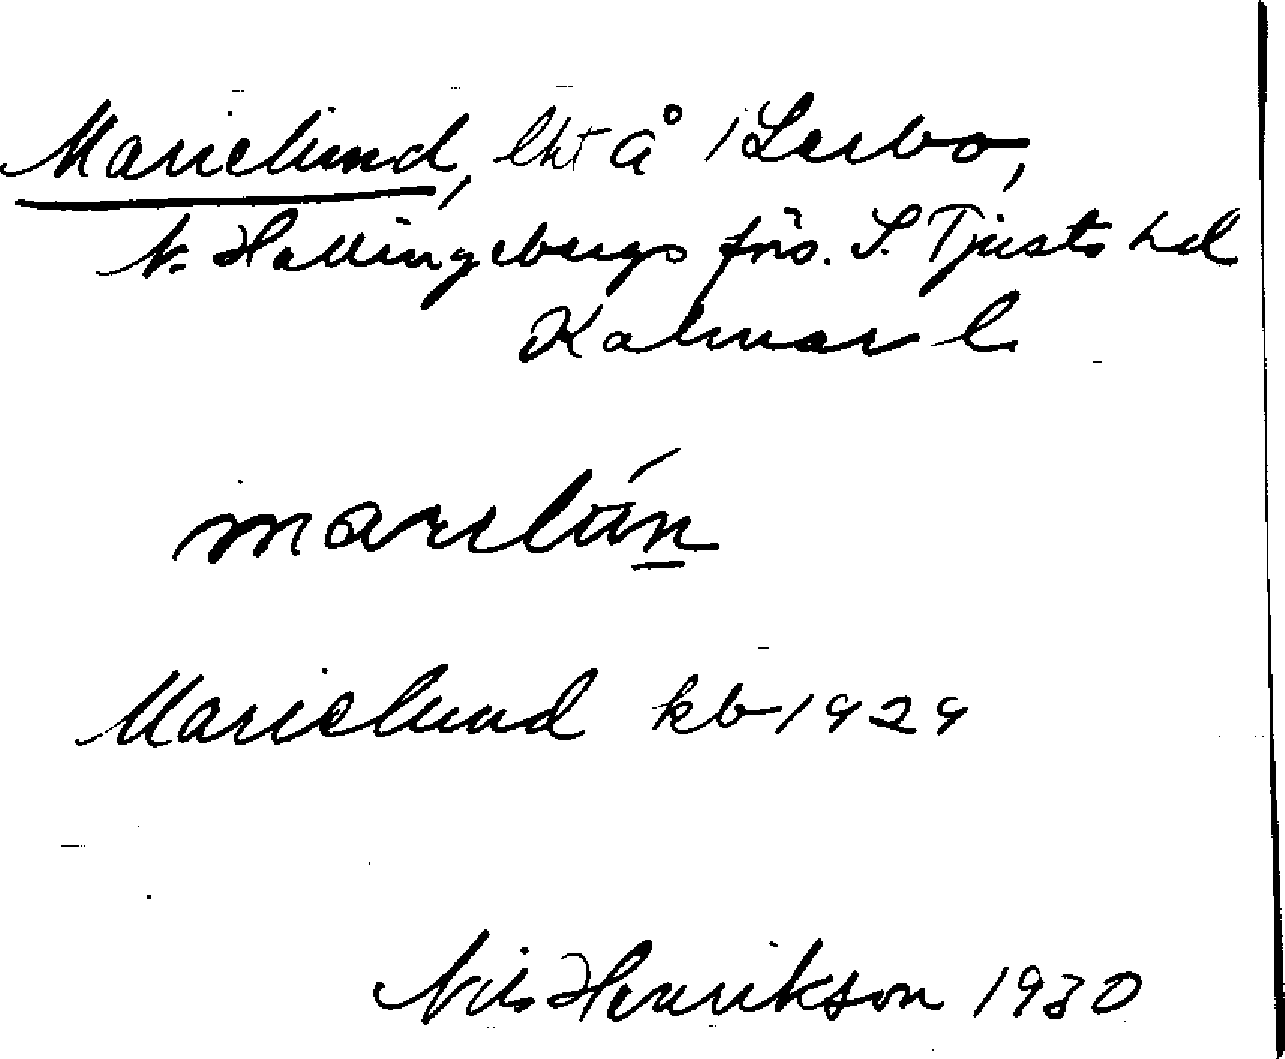 Marielund, lht å 1 Lerbo,
N. Hallingebergs förs. S. Tjusts hd
Kalmar l.
Marielund kb 1929
Nils Henrikson 1930